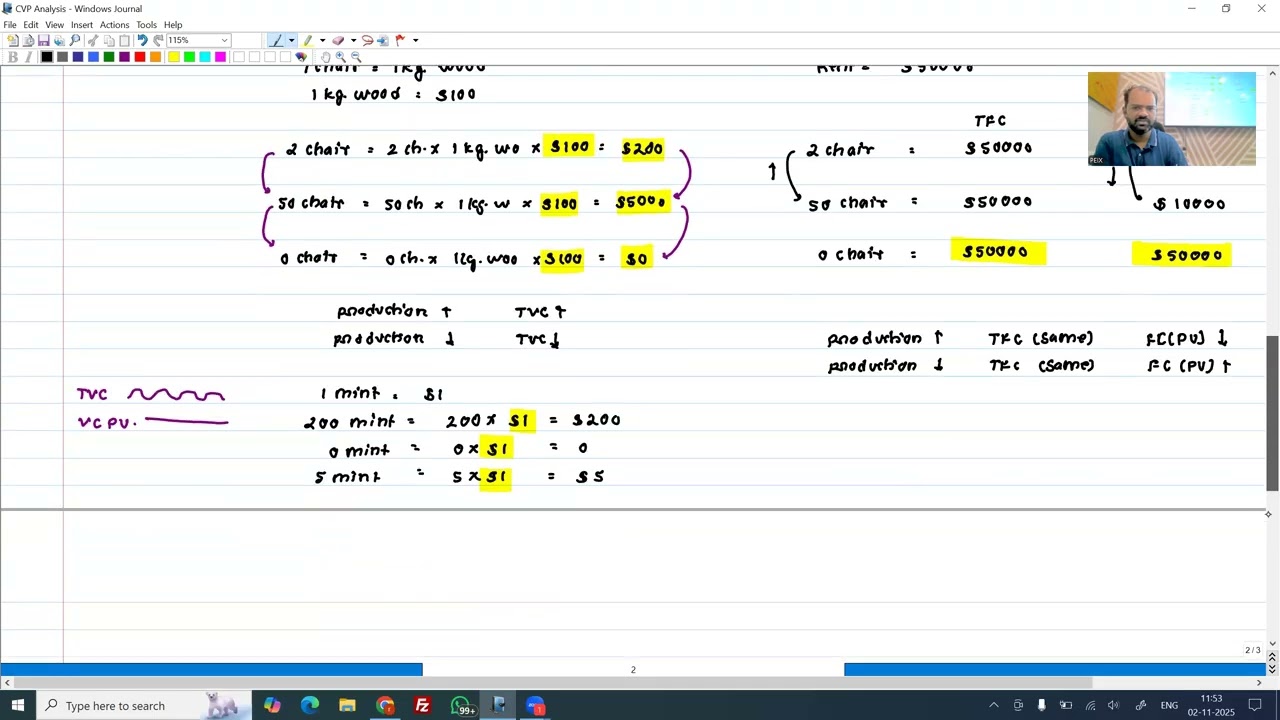 CVP Analysis - Windows Journal
File Edit View Insert Actions Tools Help
115%
B I
1 chair = 1 kg wood
1 kg wood = $100
2 chair = 2 ch. x 1 kg. wo x $100 = $200
50 chair = 50 ch x 1 kg. w x $100 = $5000
0 chair = 0 ch. x 1 kg. woo x $100 = $0
production ↑ TVC ↑
production ↓ TVC ↓
TVC
VCPU.
1 mint = $1
200 mint = 200 x $1 = $200
0 mint = 0 x $1 = 0
5 mint = 5 x $1 = $5
= $50000
TFC
2 chair = $50000
50 chair = $50000 $10000
0 chair = $50000 $50000
production ↑ TFC (same) FC(PU) ↓
production ↓ TFC (same) FC (PU) ↑
PEIX
2 / 3
2
Type here to search
99+
ENG
11:53
02-11-2025